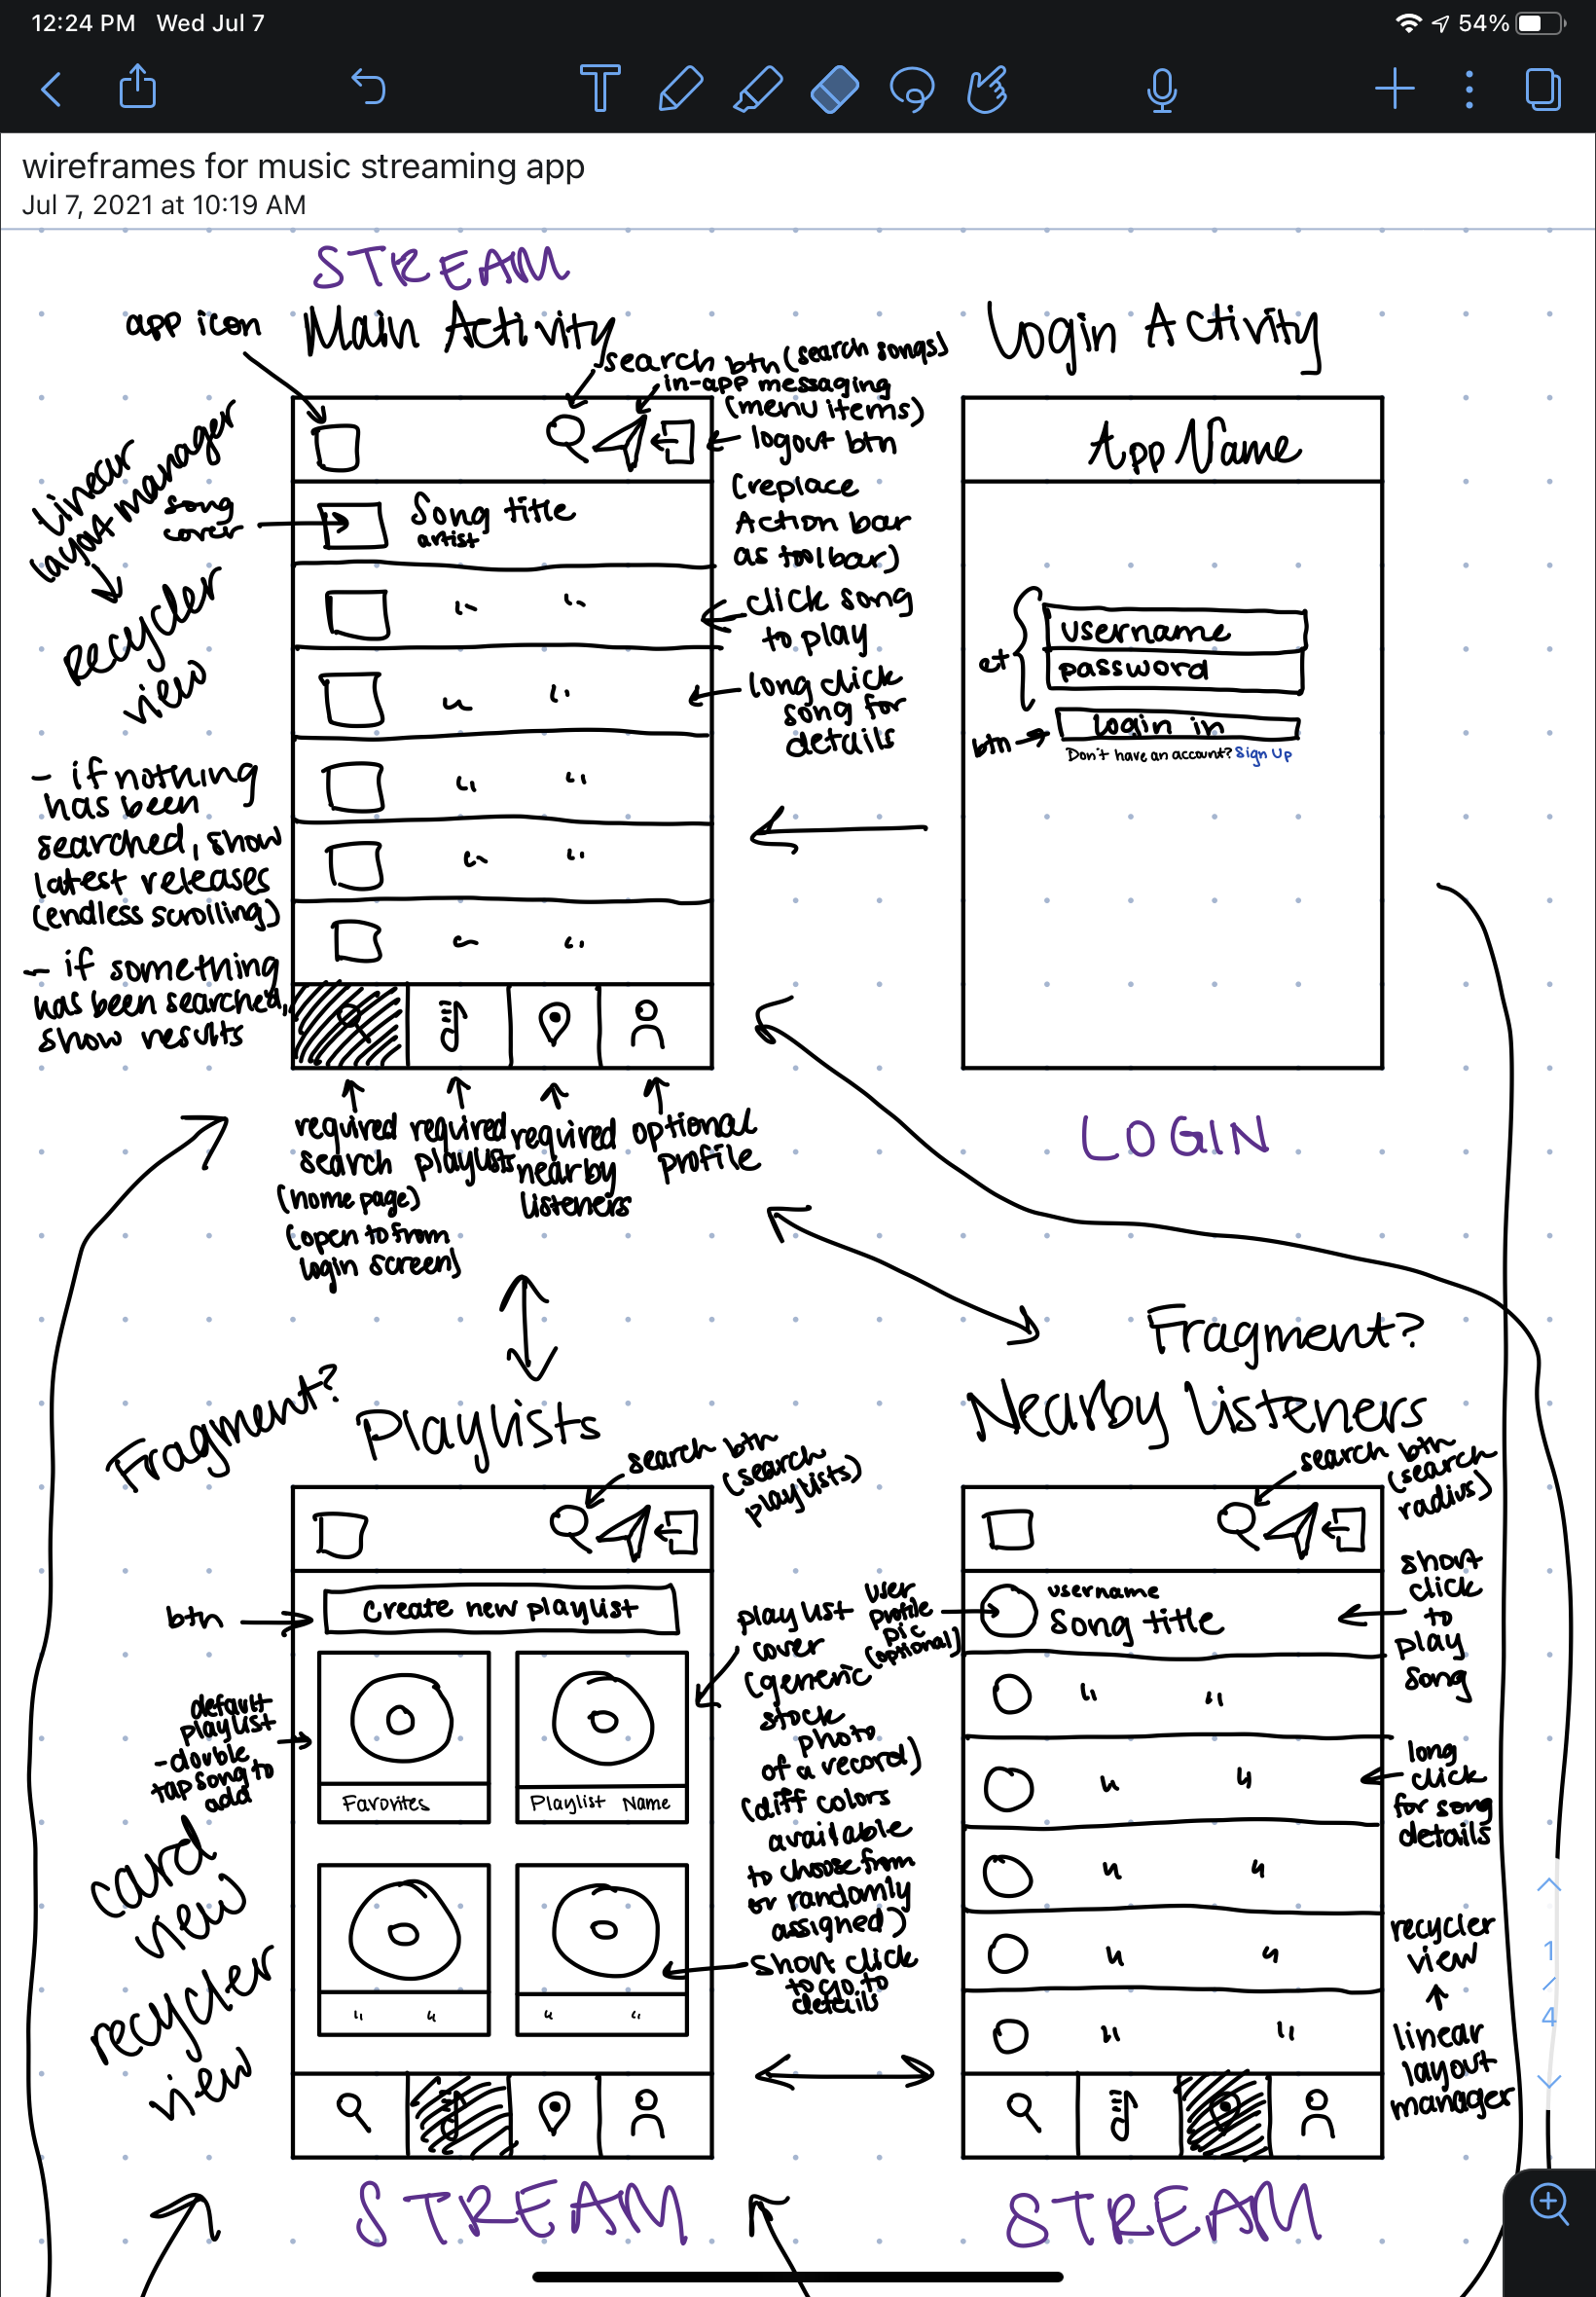 12:24 PM Wed Jul 7
54%
wireframes for music streaming app
Jul 7, 2021 at 10:19 AM
STREAM
Main Activity
app icon
search btn (search songs)
in-app messaging
(menu items)
logout btn
(replace
Action bar
as toolbar)
Linear
layout manager
↓
Recycler
view
song
cover
Song title
artist
" "
" "
" "
" "
" "
click song
to play
long click
song for
details
- if nothing
has been
searched, show
latest releases
(endless scrolling)
- if something
has been searched,
show results
required
search
(home page)
(open to from
login screen)
required
playlists
required
nearby
listeners
optional
profile
Login Activity
App Name
et
username
password
btn
login in
Don't have an account? Sign Up
LOGIN
Fragment?
Playlists
search btn
(search
playlists)
btn
Create new playlist
default
playlist
- double
tap song to
add
Favorites
Playlist Name
" "
" "
card
view
recycler
view
playlist
cover
(generic
stock
photo
of a record)
(diff colors
available
to choose from
or randomly
assigned)
short click
to go to
details
STREAM
Fragment?
Nearby Listeners
search btn
(search
radius)
user
profile
pic
(optional)
username
Song title
" "
" "
" "
" "
" "
short
click
to
play
song
long
click
for song
details
recycler
view
↑
linear
layout
manager
STREAM
1
/
4